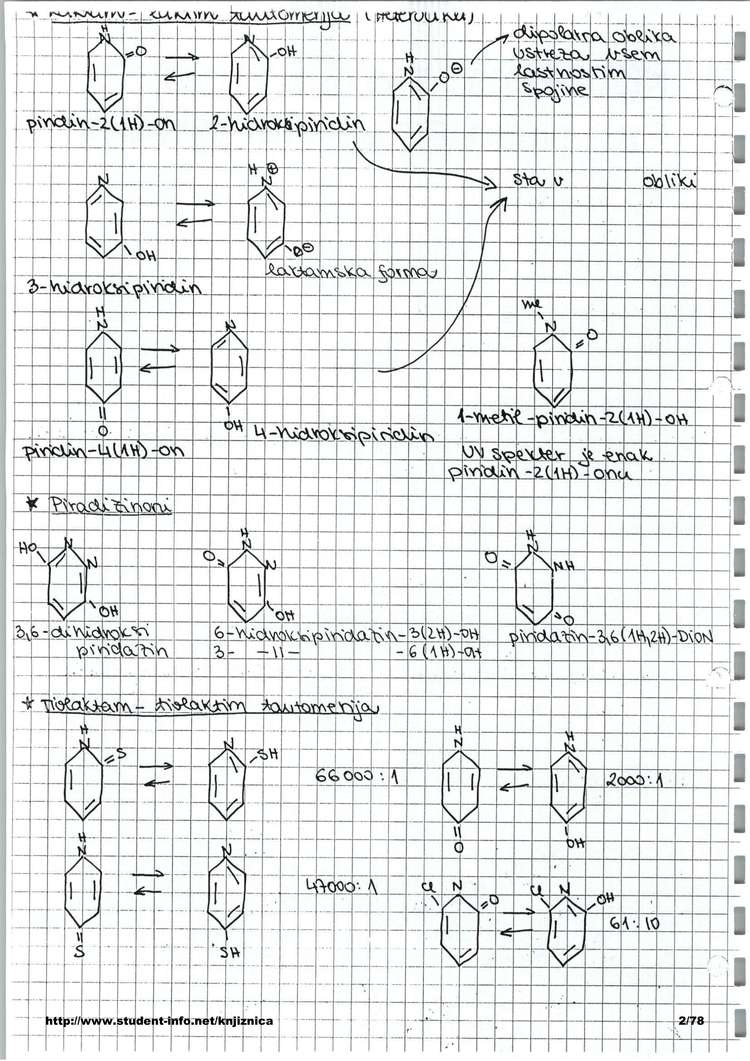 * Laktam - laktim tautomerija (Heterociklil)
dipolarna oblika
ustreza vsem
lastnostim
spojine
H
N
O
N
OH
H
N
O⊖
piridin-2(1H)-on
2-hidroksipiridin
sta v obliki
N
OH
H ⊕
N
O⊖
laktamska forma
3-hidroksipiridin
H
N
O
N
OH
me
N
O
piridin-4(1H)-on
4-hidroksipiridin
1-metil-piridin-2(1H)-OH
UV spekter je enak
piridin-2(1H)-onu
* Piradizinoni
HO
N
N
OH
H
N
O
N
OH
H
N
O
NH
O
3,6-dihidroksi
piridazin
6-hidroksipiridazin-3(2H)-OH
3- -11- -6(1H)-OH
piridazin-3,6(1H,2H)-DiON
* Tiolaktam - tiolaktim tautomerija
H
N
S
N
SH
66000:1
H
N
O
H
N
OH
2000:1
H
N
S
N
SH
47000:1
Cl
N
O
Cl
N
OH
61:10
http://www.student-info.net/knjiznica
2/78